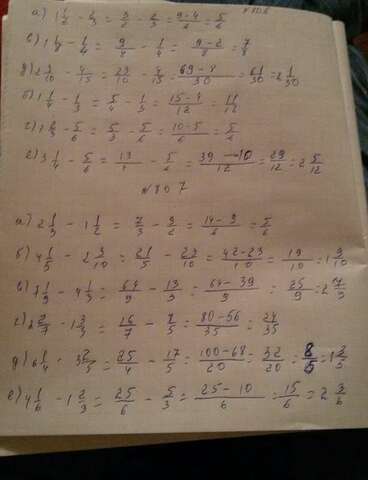 а) 1 1/2 - 2/3 = 3/2 - 2/3 = 9-4/6 = 5/6
в) 1 1/8 - 1/4 = 9/8 - 1/4 = 9-2/8 = 7/8
д) 2 3/10 - 4/15 = 23/10 - 4/15 = 69-8/30 = 61/30 = 2 1/30
б) 1 1/4 - 1/3 = 5/4 - 1/3 = 15-4/12 = 11/12
г) 1 2/3 - 5/6 = 5/3 - 5/6 = 10-5/6 = 5/6
е) 3 1/4 - 5/6 = 13/4 - 5/6 = 39-10/12 = 29/12 = 2 5/12
№807
а) 2 1/3 - 1 1/2 = 7/3 - 3/2 = 14-9/6 = 5/6
б) 4 1/5 - 2 3/10 = 21/5 - 23/10 = 42-23/10 = 19/10 = 1 9/10
в) 7 1/9 - 4 1/3 = 64/9 - 13/3 = 64-39/9 = 25/9 = 2 7/9
г) 2 2/7 - 1 3/5 = 16/7 - 8/5 = 80-56/35 = 24/35
д) 6 1/4 - 3 2/5 = 25/4 - 17/5 = 100-68/20 = 32/20 = 8/5 = 1 3/5
е) 4 1/6 - 1 2/3 = 25/6 - 5/3 = 25-10/6 = 15/6 = 2 3/6